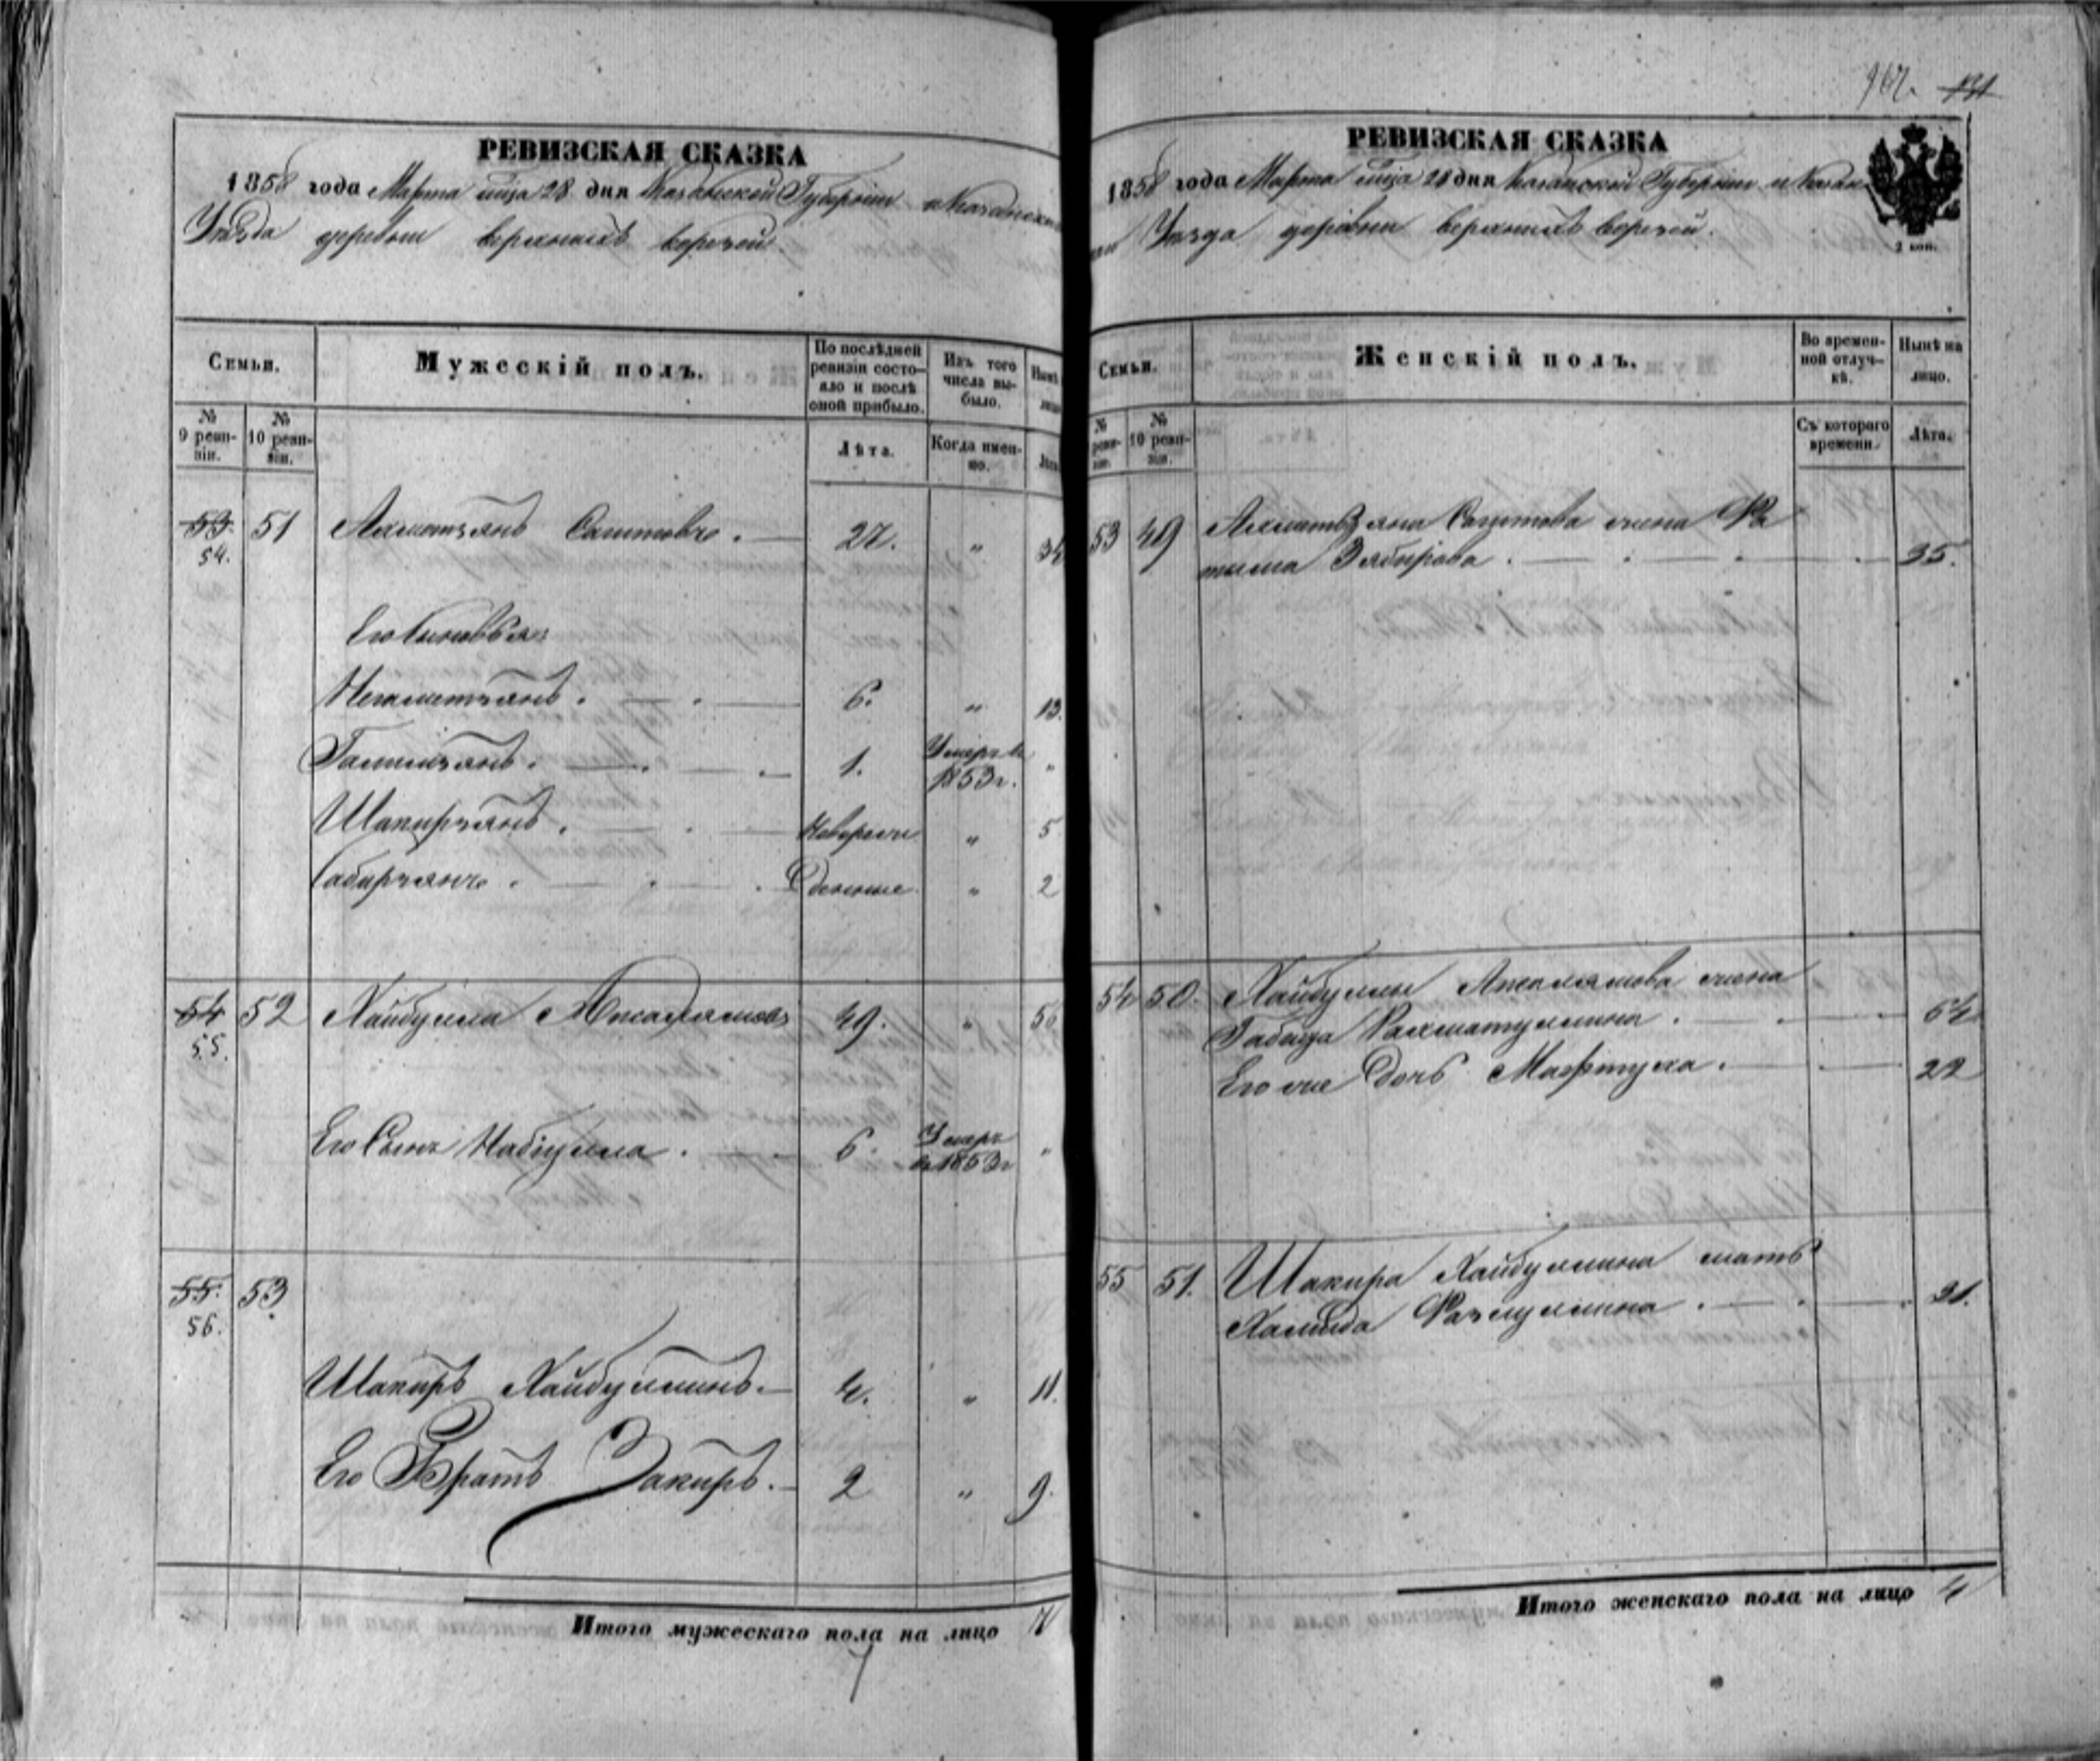 РЕВИЗСКАЯ СКАЗКА
1858 года Марта м-ца 28 дня Казанской Губернии и Казанскаго
Уѣзда деревни верхнихъ верезей.
Семьи.
Мужескій полъ.
По послѣдней ревизіи состояло и послѣ оной прибыло.
Изъ того числа выбыло.
Нынѣ
№ 9 ревизіи.
№ 10 ревизіи.
Лѣта.
Когда именно.
53. 54. 51 Ахметзянъ Саитовъ. 27. " 34
Его Сыновья
Негаметзянъ. 6. " 13.
Галимзянъ. 1. Умеръ въ 1853 г. "
Шакирзянъ. Новорожде " 5
Сабирзянъ. Деныше " 2
54 55. 52 Хайбулла 49. " 56
Его Сынъ Набиулла. 6. Умеръ въ 1853 г "
55. 56. 53
Шакиръ Хайбуллинъ. 4. " 11.
Его Братъ Закиръ. 2 " 9.
Итого мужескаго пола на лицо 7
7
967. 131
РЕВИЗСКАЯ СКАЗКА
1858 года Марта м-ца 28 дня Казанской Губернии и Казан
Уѣзда деревни верхнихъ верезей.
2 коп.
Семьи.
Женскій полъ.
Во временной отлучкѣ.
Нынѣ на лицо.
№ ревизіи.
№ 10 ревизіи.
Съ котораго времени.
Лѣта.
53 49 Ахметзяна Саитова жена Фа
тыма Зябирова. 35.
54 50. Хайбуллы жена
Габида Рахматуллина. 54
Его же Дочь Мафтуха. 22
55 51. Шакира Хайбуллина мать
Халида Фазлуллина. 31.
Итого женскаго пола на лицо 4